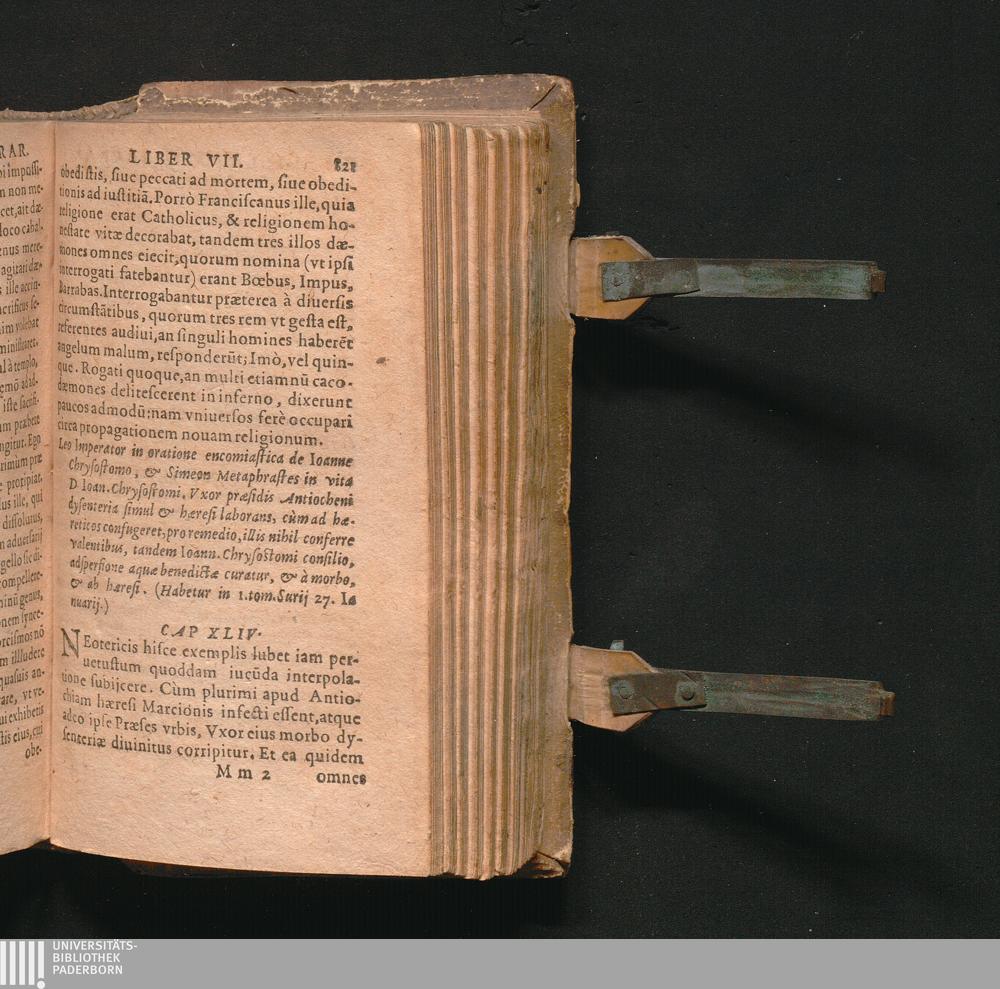 RAR.
non me-
cet, ait dæ-
loco cabal-
agitati dæ-
ministraret.
l à templo,
iste sacrifi-
um præbere
ngitur. Ego
rimùm præ
e propiar,
lus ille, qui
dissolutus,
compellere-
ninū genus,
orcismos nō
m illludere
quasuis an-
are, vt ve-
ui exhibetis
stis eius, cui
obe-
LIBER VII. 821
obedistis, siue peccati ad mortem, siue obedi-
tionis ad iustitiā. Porrò Franciscanus ille, quia
religione erat Catholicus, & religionem ho-
nestate vitæ decorabat, tandem tres illos dæ-
mones omnes eiecit, quorum nomina (vt ipsi
interrogati fatebantur) erant Bœbus, Impus,
Barrabas. Interrogabantur præterea à diuersis
circumstātibus, quorum tres rem vt gesta est,
referentes audiui, an singuli homines haberēt
angelum malum, responderūt; Imò, vel quin-
que. Rogati quoque, an multi etiamnū caco-
dæmones delitescerent in inferno, dixerunt
paucos admodū: nam vniuersos ferè occupari
circa propagationem nouam religionum.
Leo Imperator in oratione encomiastica de Ioanne
Chrysostomo, & Simeon Metaphrastes in vita
D Ioan. Chrysostomi. Vxor præsidis Antiocheni
dysenteria simul & hæresi laborans, cùm ad hæ-
reticos confugeret, pro remedio, illis nihil conferre
valentibus, tandem Ioann. Chrysostomi consilio,
adspersione aquæ benedictæ curatur, & à morbo,
& ab hæresi. (Habetur in 1. tom. Surij 27. Ia
nuarij.)
CAP XLIV.
NEotericis hisce exemplis lubet iam per-
uetustum quoddam iucūda interpola-
tione subijcere. Cùm plurimi apud Antio-
chiam hæresi Marcionis infecti essent, atque
adeo ipse Præses vrbis, Vxor eius morbo dy-
senteriæ diuinitus corripitur. Et ea quidem
M m 2 omnes
UNIVERSITÄTS-
BIBLIOTHEK
PADERBORN